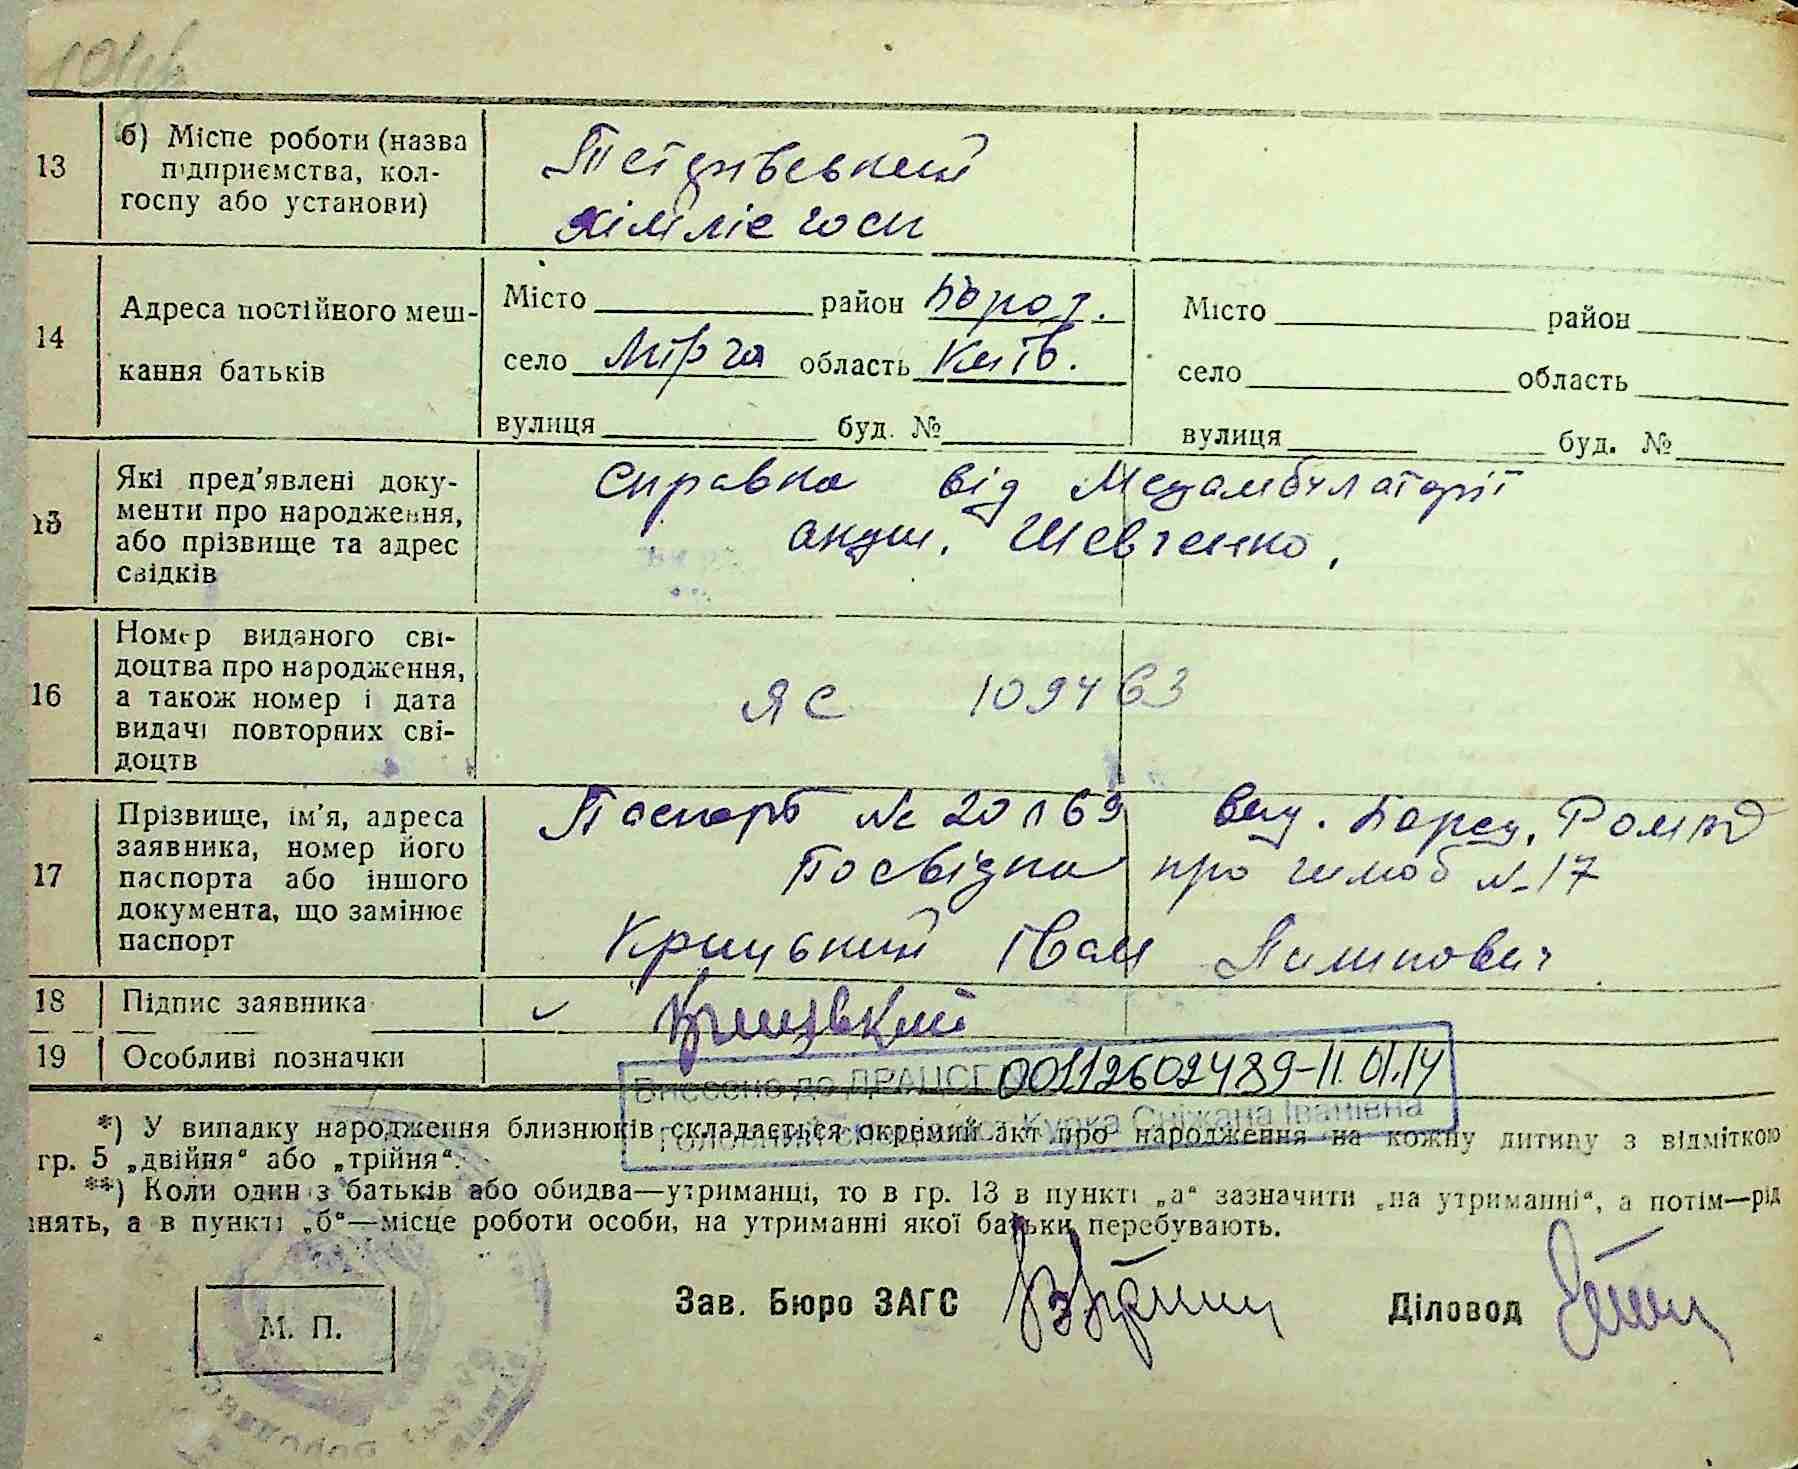 13
б) Місце роботи (назва
підприємства, кол-
госпу або установи)
Тетерівський
хімліс госп
14
Адреса постійного меш-
кання батьків
Місто район Бород.
село Мірча область Київ.
вулиця буд. №
Місто район
село область
вулиця буд. №
15
Які пред'явлені доку-
менти про народження,
або прізвище та адрес
свідків
Справка від Медамбулаторії
Шевченко.
16
Номер виданого сві-
доцтва про народження,
а також номер і дата
видачі повторних сві-
доцтв
ЯС 109463
17
Прізвище, ім'я, адреса
заявника, номер його
паспорта або іншого
документа, що замінює
паспорт
Паспорт № вид. Бород.
Посвідка про шлюб №17
Крицький Іван Пилипович
18
Підпис заявника
Крицький
19
Особливі позначки
Внесено до ДРАЦСГ 00112602489-11.01.14
Головний спеціаліст Курка Сніжана Іванівна
*) У випадку народження близнюків складається окремий акт про народження на кожну дитину з відміткою
гр. 5 „двійня“ або „трійня“.
**) Коли один з батьків або обидва—утриманці, то в гр. 13 в пункті „а“ зазначити „на утриманні“, а потім—рід
нять, а в пункті „б“—місце роботи особи, на утриманні якої батьки перебувають.
М. П.
Зав. Бюро ЗАГС
Діловод